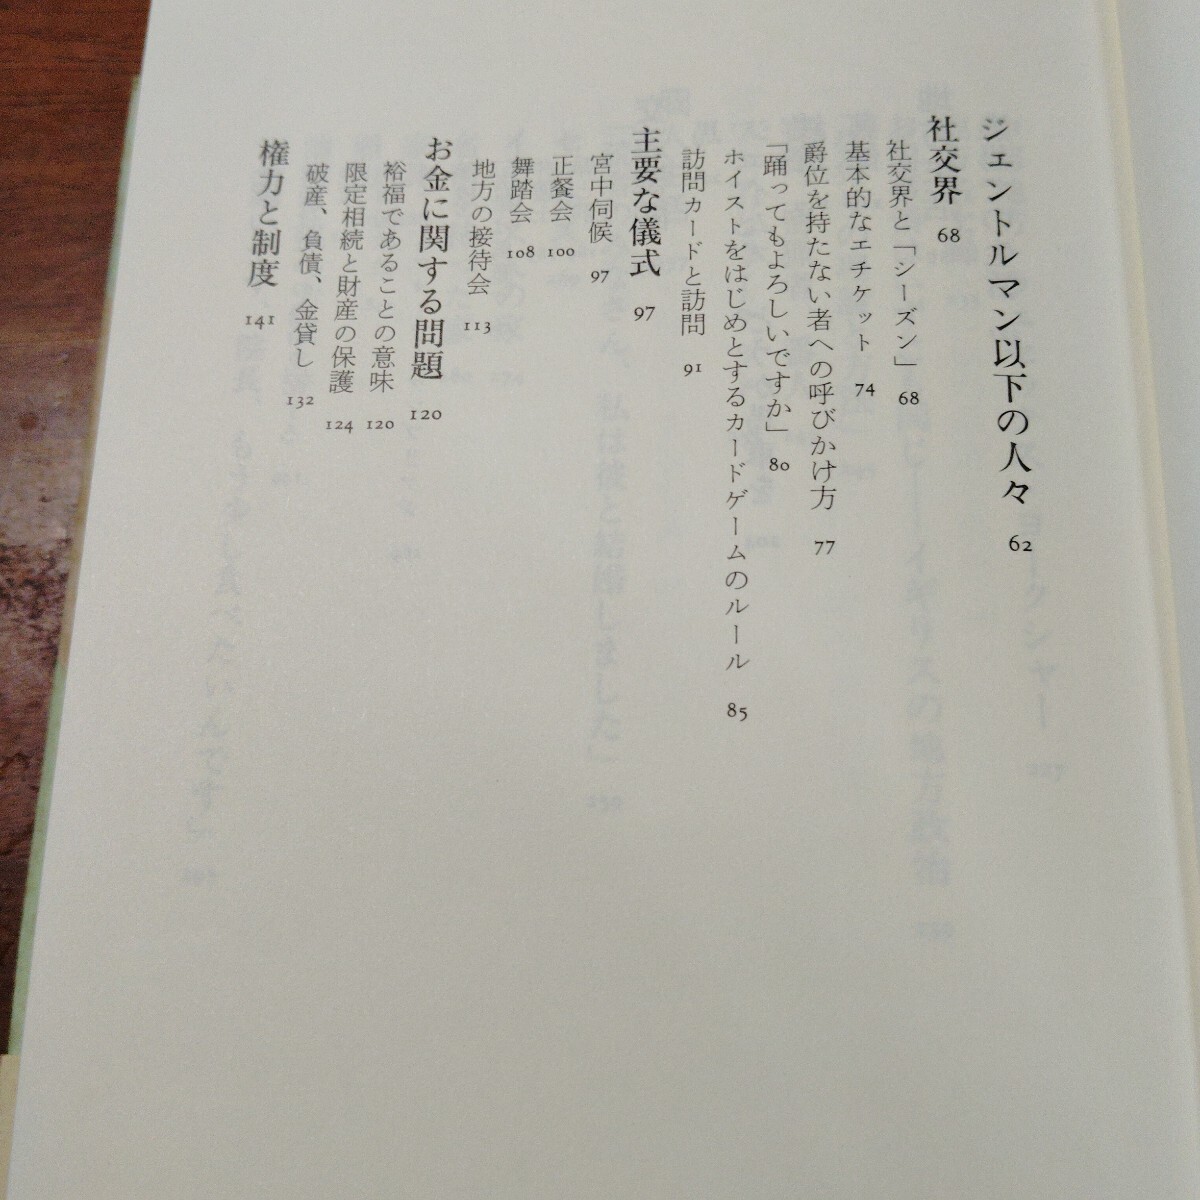 ジェントルマン以下の人々 62
社交界 68
社交界と「シーズン」 68
基本的なエチケット 74
爵位を持たない者への呼びかけ方 77
「踊ってもよろしいですか」 80
ホイストをはじめとするカードゲームのルール 85
訪問カードと訪問 91
主要な儀式 97
宮中伺候 97
正餐会 100
舞踏会 108
地方の接待会 113
お金に関する問題 120
裕福であることの意味 120
限定相続と財産の保護 124
破産、負債、金貸し 132
権力と制度 141